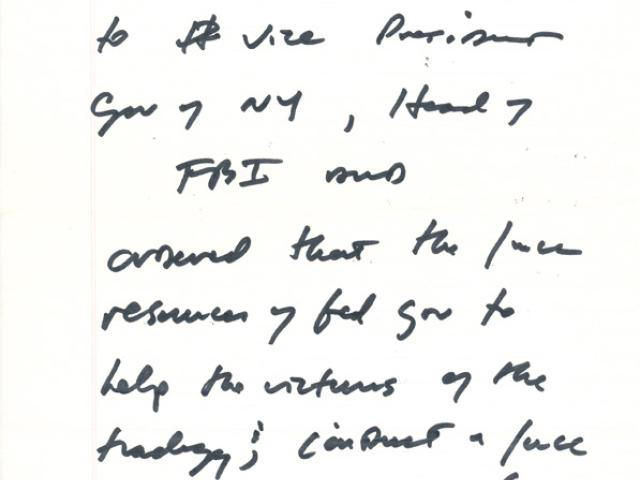 to the Vice President
Gov of NY, Head of
FBI and
ordered that the full
resources of fed gov to
help the victims of the
tradegy; conduct a full